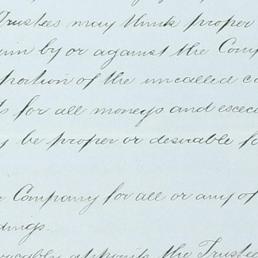 Trustees may think proper
by or against the Comp
portion of the uncalled c
for all moneys and
be proper or desirable fo
Company for all or any of
dings.
appoints the Trustee